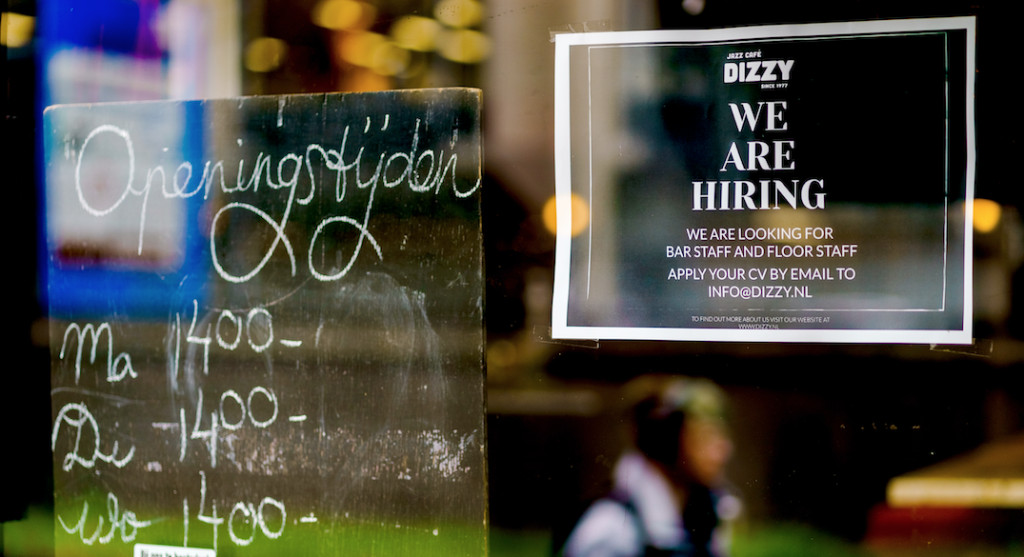 Openingstijden
Ma 14⁰⁰ –
Di 14⁰⁰ –
Wo 14⁰⁰ –
JAZZ CAFÉ
DIZZY
SINCE 1977
WE
ARE
HIRING
WE ARE LOOKING FOR
BAR STAFF AND FLOOR STAFF
APPLY YOUR CV BY EMAIL TO
INFO@DIZZY.NL
TO FIND OUT MORE ABOUT US VISIT OUR WEBSITE AT
WWW.DIZZY.NL